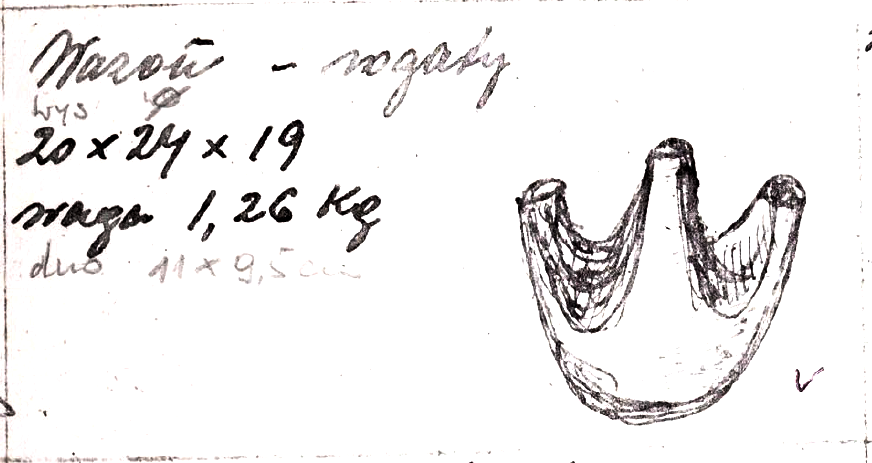 Wazon - rogaty
wys ⌀
20 x 24 x 19
waga 1,26 Kg
dno 11 x 9,5 cm